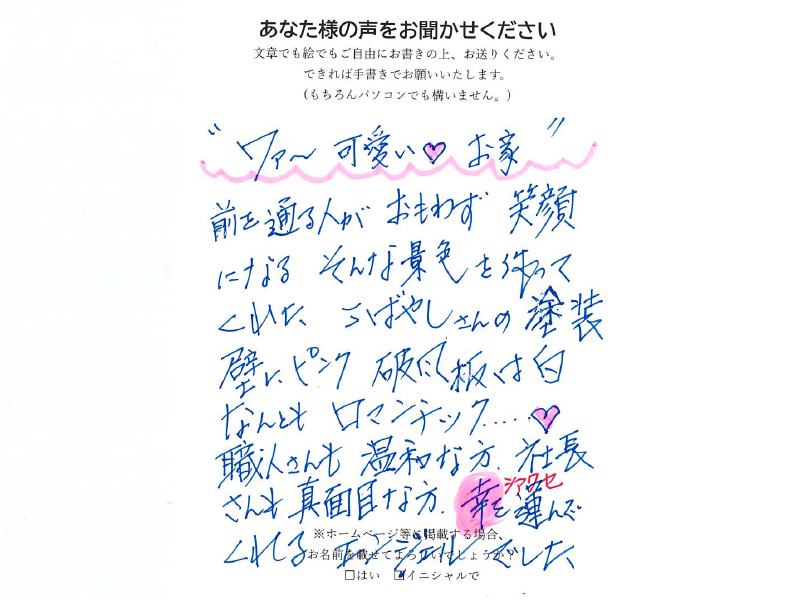 あなた様の声をお聞かせください
文章でも絵でもご自由にお書きの上、お送りください。
できれば手書きでお願いいたします。
(もちろんパソコンでも構いません。)
〝ワァ〜 可愛い♡ お家〟
前を通る人が おもわず 笑顔
になる そんな景色を作って
くれた、こばやしさんの塗装
壁は、ピンク 破風板は白
なんとも ロマンチック....♡
職人さんも 温和な方、社長
シアワセ
さんも真面目な方、幸を運んで
くれてる エンジェルでした、
※ホームページ等に掲載する場合、
お名前を載せてよろしいでしょうか?
□はい □イニシャルで